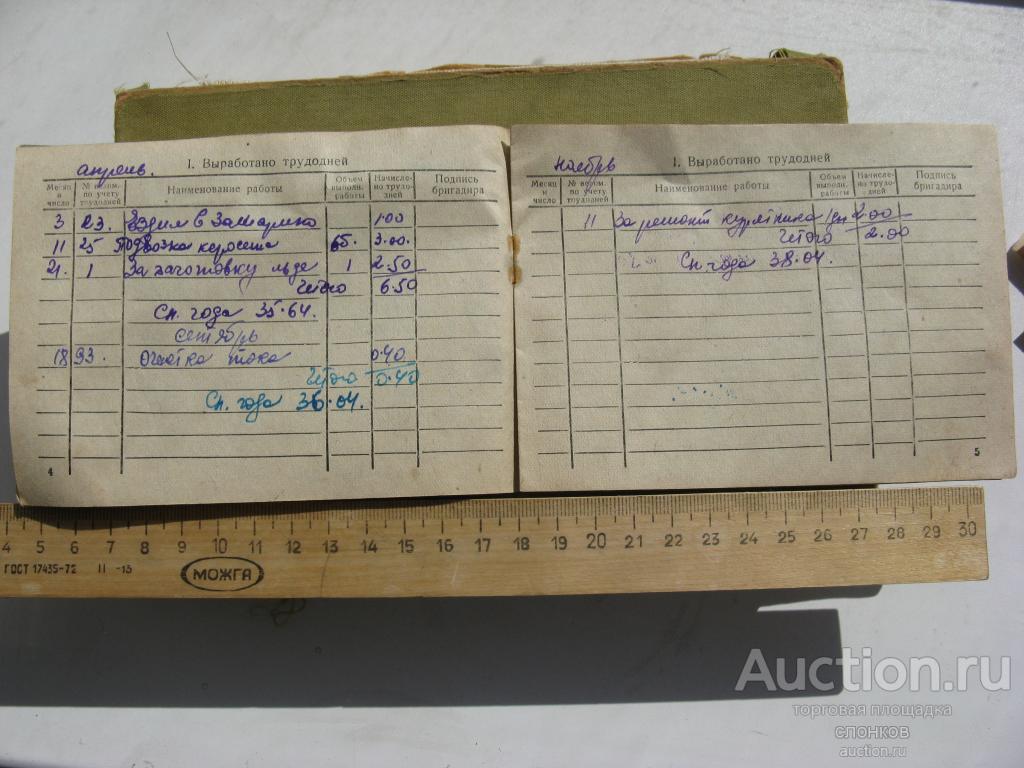 апрель.
I. Выработано трудодней
Месяц и число
№ ведом. по учету трудодней
Наименование работы
Объем выполн. работы
Начислено трудодней
Подпись бригадира
3 23. Ездил в 1.00
11 25 Подвозка керосина 65. 3.00.
21. 1 За заготовку льда 1 2.50
Итого 6.50
Сн. года 35.64.
сентябрь
18 93. Очистка тока 0.40
Итого 0.40
Сн. года 36.04.
4
ноябрь
I. Выработано трудодней
Месяц и число
№ ведом. по учету трудодней
Наименование работы
Объем выполн. работы
Начислено трудодней
Подпись бригадира
11 За ремонт курятника 2.00
Итого 2.00
Сн года 38.04.
5
4 5 6 7 8 9 10 11 12 13 14 15 16 17 18 19 20 21 22 23 24 25 26 27 28 29 30
ГОСТ 17435-72
МОЖГА
Auction.ru
торговая площадка
СЛОНКОВ
auction.ru